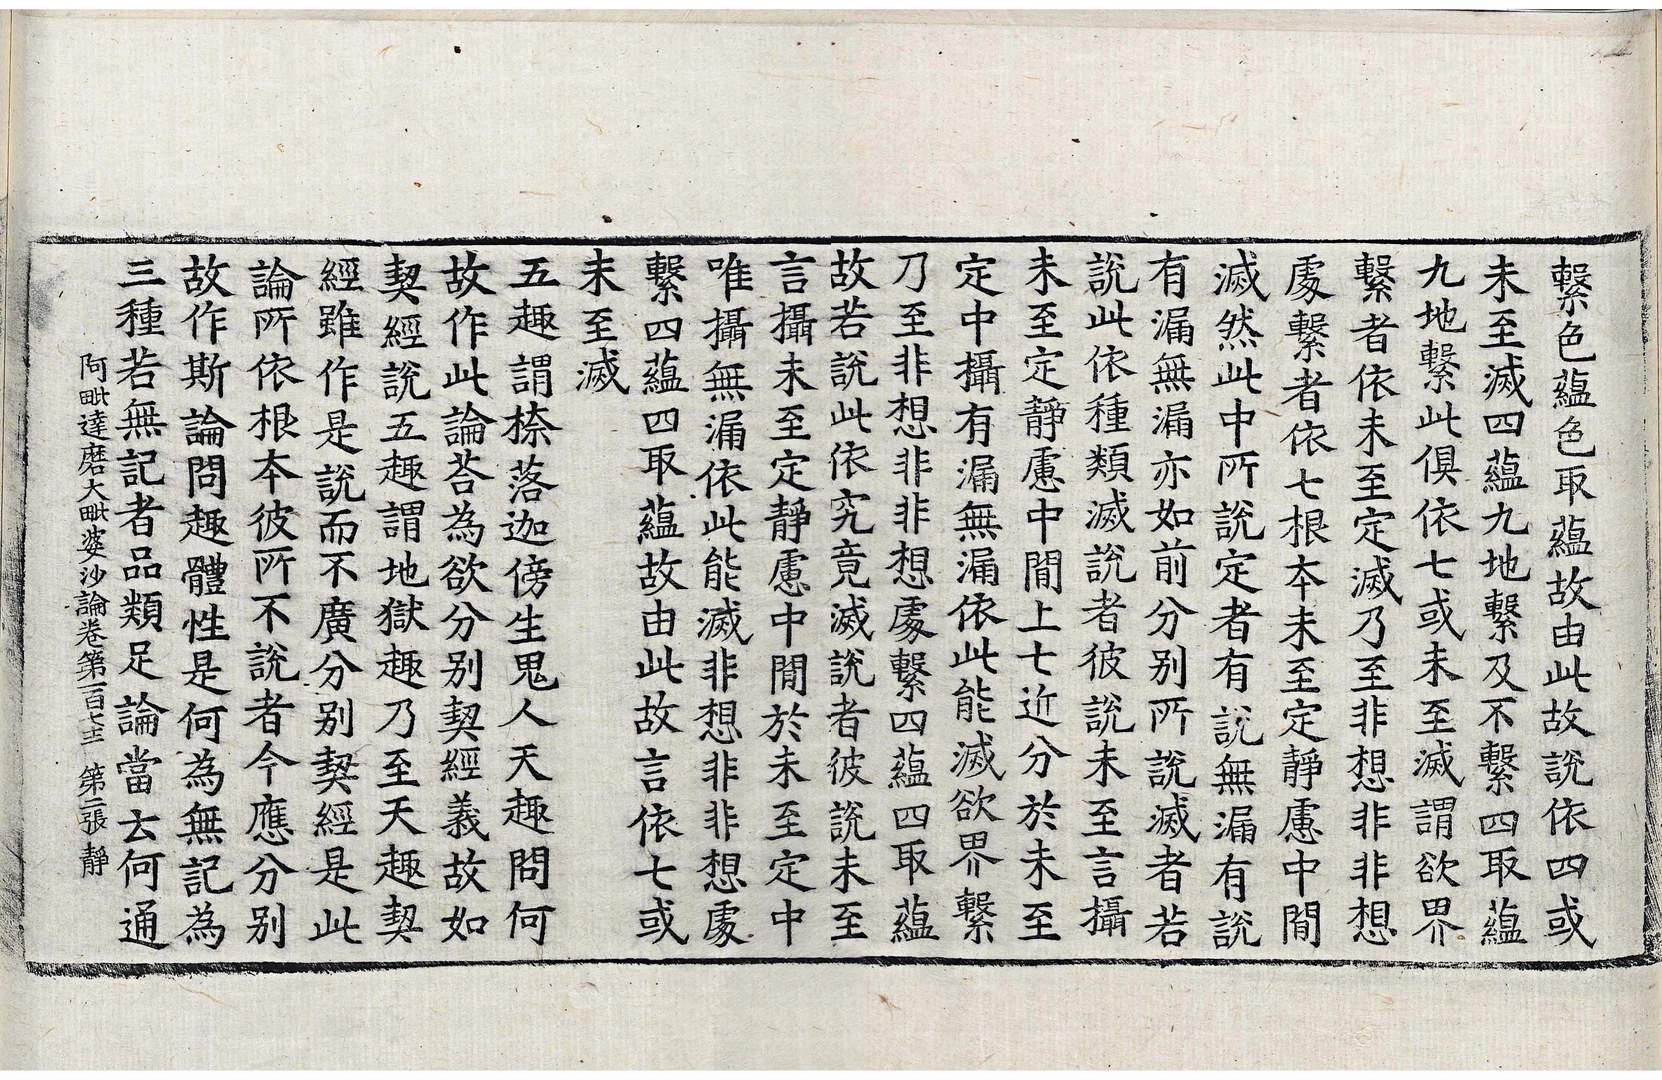 繫色蘊色取蘊故由此故說依四或
未至滅四蘊九地繫及不繫四取蘊
九地繫此俱依七或未至滅謂欲界
繫者依未至定滅乃至非想非非想
處繫者依七根本未至定靜慮中閒
滅然此中所說定者有說無漏有說
有漏無漏亦如前分別所說滅者若
說此依種類滅說者彼說未至言攝
未至定靜慮中閒上七近分於未至
定中攝有漏無漏依此能滅欲界繫
乃至非想非非想處繫四蘊四取蘊
故若說此依究竟滅說者彼說未至
言攝未至定靜慮中閒於未至定中
唯攝無漏依此能滅非想非非想處
繫四蘊四取蘊故由此故言依七或
未至滅
五趣謂㮈落迦傍生鬼人天趣問何
故作此論荅為欲分別契經義故如
契經說五趣謂地獄趣乃至天趣契
經雖作是說而不廣分別契經是此
論所依根本彼所不說者今應分別
故作斯論問趣體性是何為無記為
三種若無記者品類足論當云何通
阿毗達磨大毗婆沙論卷第一百七十二 第二張 靜